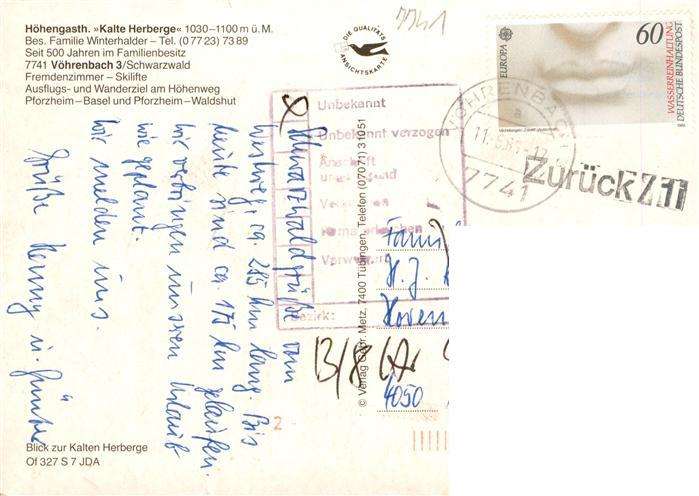 Höhengasth. »Kalte Herberge« 1030–1100 m ü. M.
Bes. Familie Winterhalder – Tel. (0 77 23) 73 89
Seit 500 Jahren im Familienbesitz
7741 Vöhrenbach 3/Schwarzwald
Fremdenzimmer – Skilifte
Ausflugs- und Wanderziel am Höhenweg
Pforzheim – Basel und Pforzheim – Waldshut
DIE QUALITÄTS
ANSICHTSKARTE
7741
EUROPA
60
WASSERREINHALTUNG
DEUTSCHE BUNDESPOST
VÖHRENBACH
a
7741
Zurück
Unbekannt
Unbekannt verzogen
Anschrift
Bezirk:
Schwarzwaldgrüße vom
Westweg, ca. 285 km lang. Bis
heute sind ca. 175 km gelaufen.
Wir verbringen unseren Urlaub
wie geplant.
Wir melden uns.
Grüße
© Verlag Gebr. Metz, 7400 Tübingen, Telefon (0 70 71) 3 10 51
Fam
H. J.
4050
2
Blick zur Kalten Herberge
Of 327 S 7 JDA